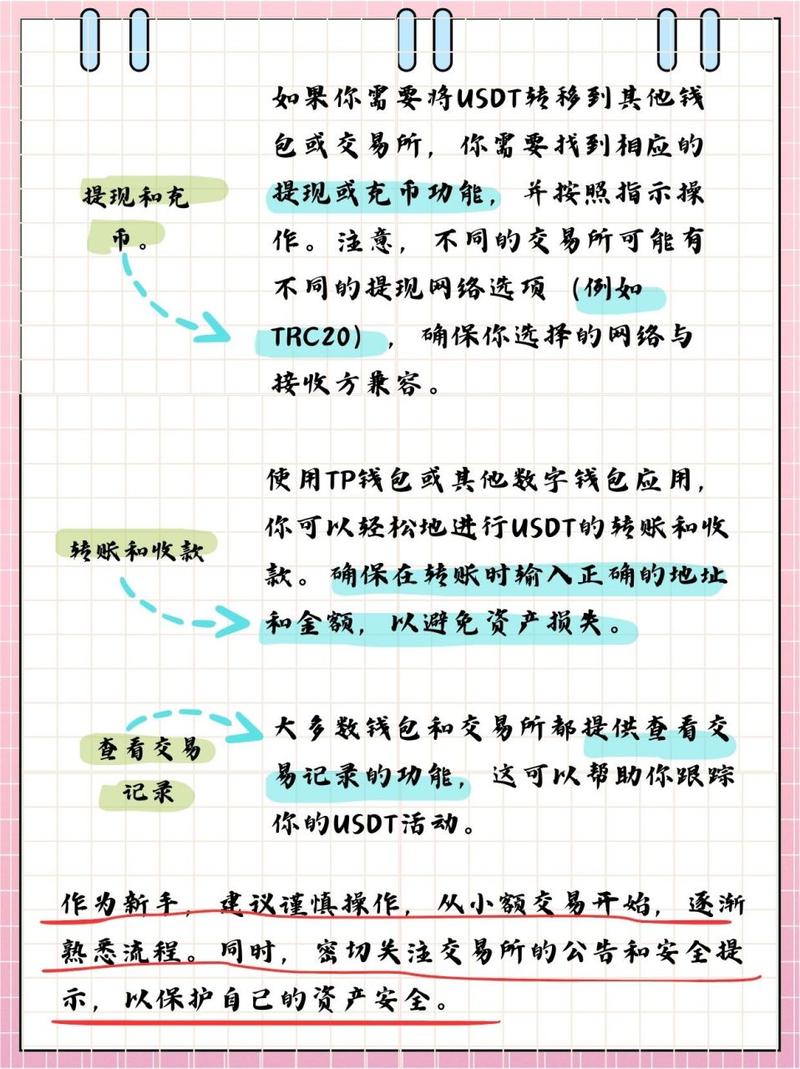 如果你需要将USDT转移到其他钱
包或交易所，你需要找到相应的
提现或充币功能，并按照指示操
作。注意，不同的交易所可能有
不同的提现网络选项（例如
TRC20），确保你选择的网络与
接收方兼容。
提现和充
币。
使用TP钱包或其他数字钱包应用，
你可以轻松地进行USDT的转账和收
款。确保在转账时输入正确的地址
和金额，以避免资产损失。
转账和收款
大多数钱包和交易所都提供查看交
易记录的功能，这可以帮助你跟踪
你的USDT活动。
查看交易
记录
作为新手，建议谨慎操作，从小额交易开始，逐渐
熟悉流程。同时，密切关注交易所的公告和安全提
示，以保护自己的资产安全。